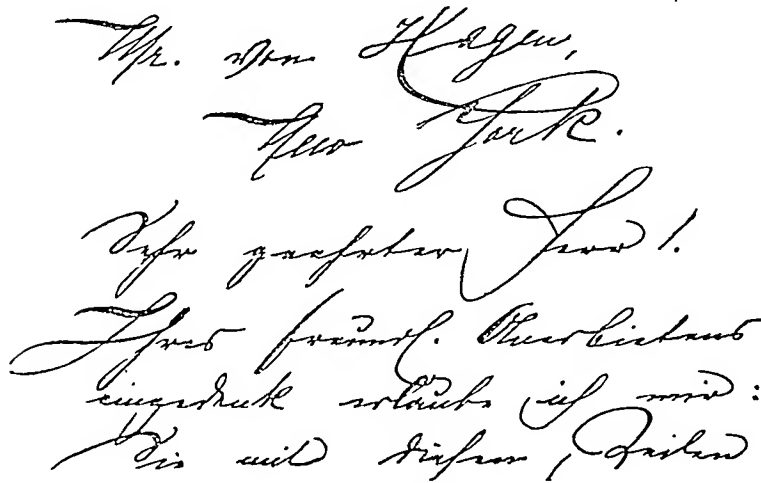 Mr. von Hagen,
New York.
Sehr geehrter Herr!
Ihres freundl. Anerbietens
eingedenk erlaube ich mir:
Sie mit diesen Zeilen